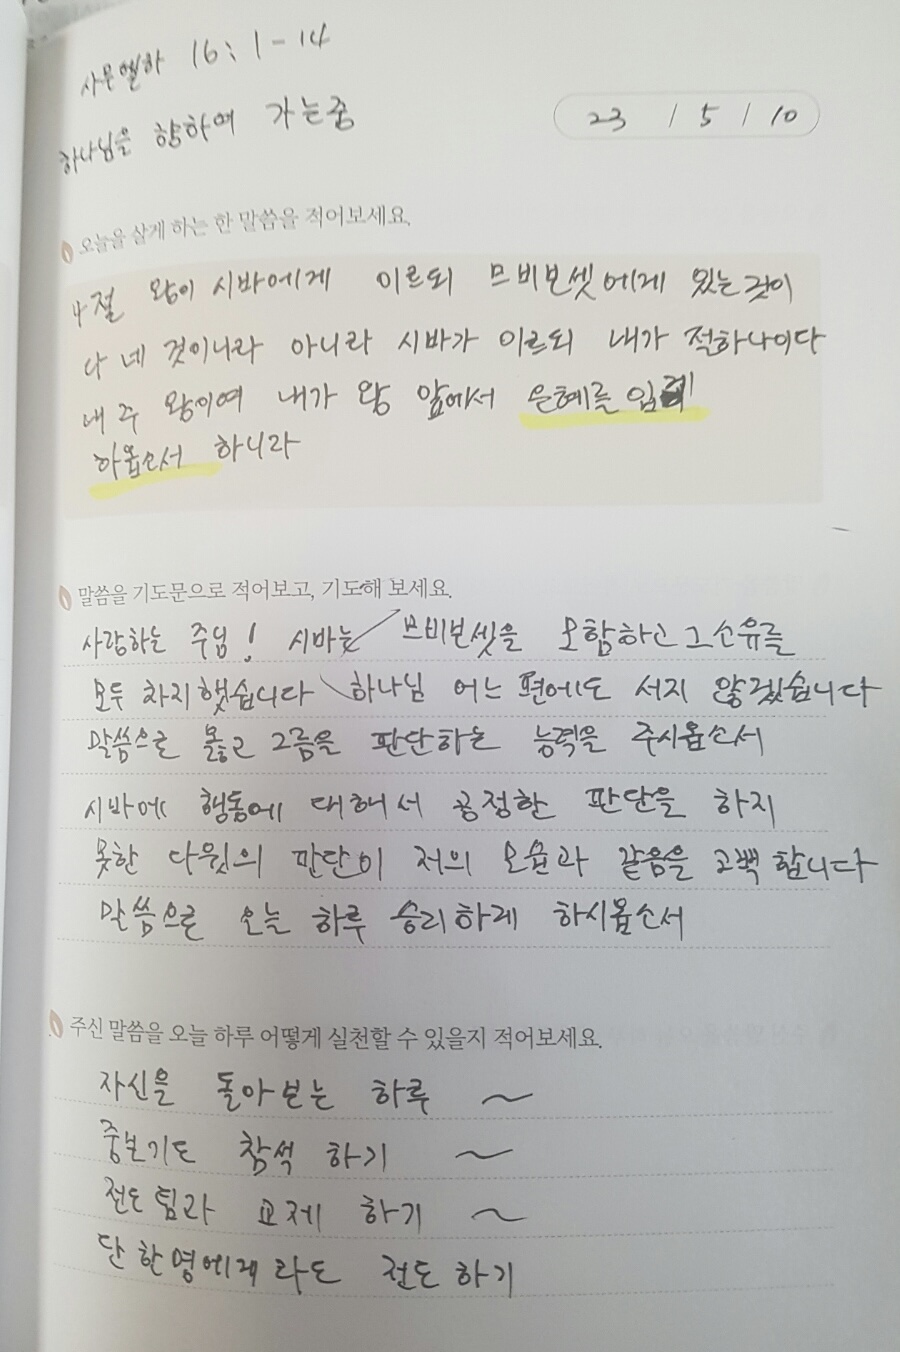 사무엘하 16:1-14
하나님을 향하여 가는중
23 / 5 / 10
오늘을 살게 하는 한 말씀을 적어보세요.
4절 왕이 시바에게 이르되 므비보셋에게 있는것이
다 네 것이니라 아니라 시바가 이르되 내가 절하나이다
내 주 왕이여 내가 왕 앞에서 은혜를 입게
하옵소서 하니라
말씀을 기도문으로 적어보고, 기도해 보세요.
사랑하는 주님! 시바는 므비보셋을 모함하고 그 소유를
모두 차지했습니다 하나님 어느 편에도 서지 않겠습니다
말씀으로 옳고 그름을 판단하는 능력을 주시옵소서
시바에 행동에 대해서 공정한 판단을 하지
못한 다윗의 판단이 저의 모습과 같음을 고백 합니다
말씀으로 오늘 하루 승리하게 하시옵소서
주신 말씀을 오늘 하루 어떻게 실천할 수 있을지 적어보세요.
자신을 돌아보는 하루 ~
중보기도 참석 하기 ~
전도팀과 교제 하기 ~
단 한명에게라도 전도하기